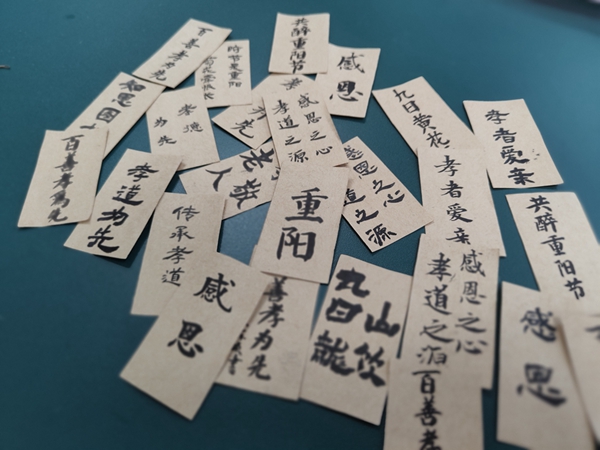 百善孝为先
共醉重阳节
感恩
时节是重阳
知恩
孝德
为先
感恩之心
孝道之源
九日黄花
孝者爱亲
百善孝为先
孝道为先
老
人
感恩之心
道之源
孝者爱亲
共醉重阳节
传承孝道
重阳
感恩
善孝为先
九日
山饮
感恩之心
孝道之源
感恩
百善孝